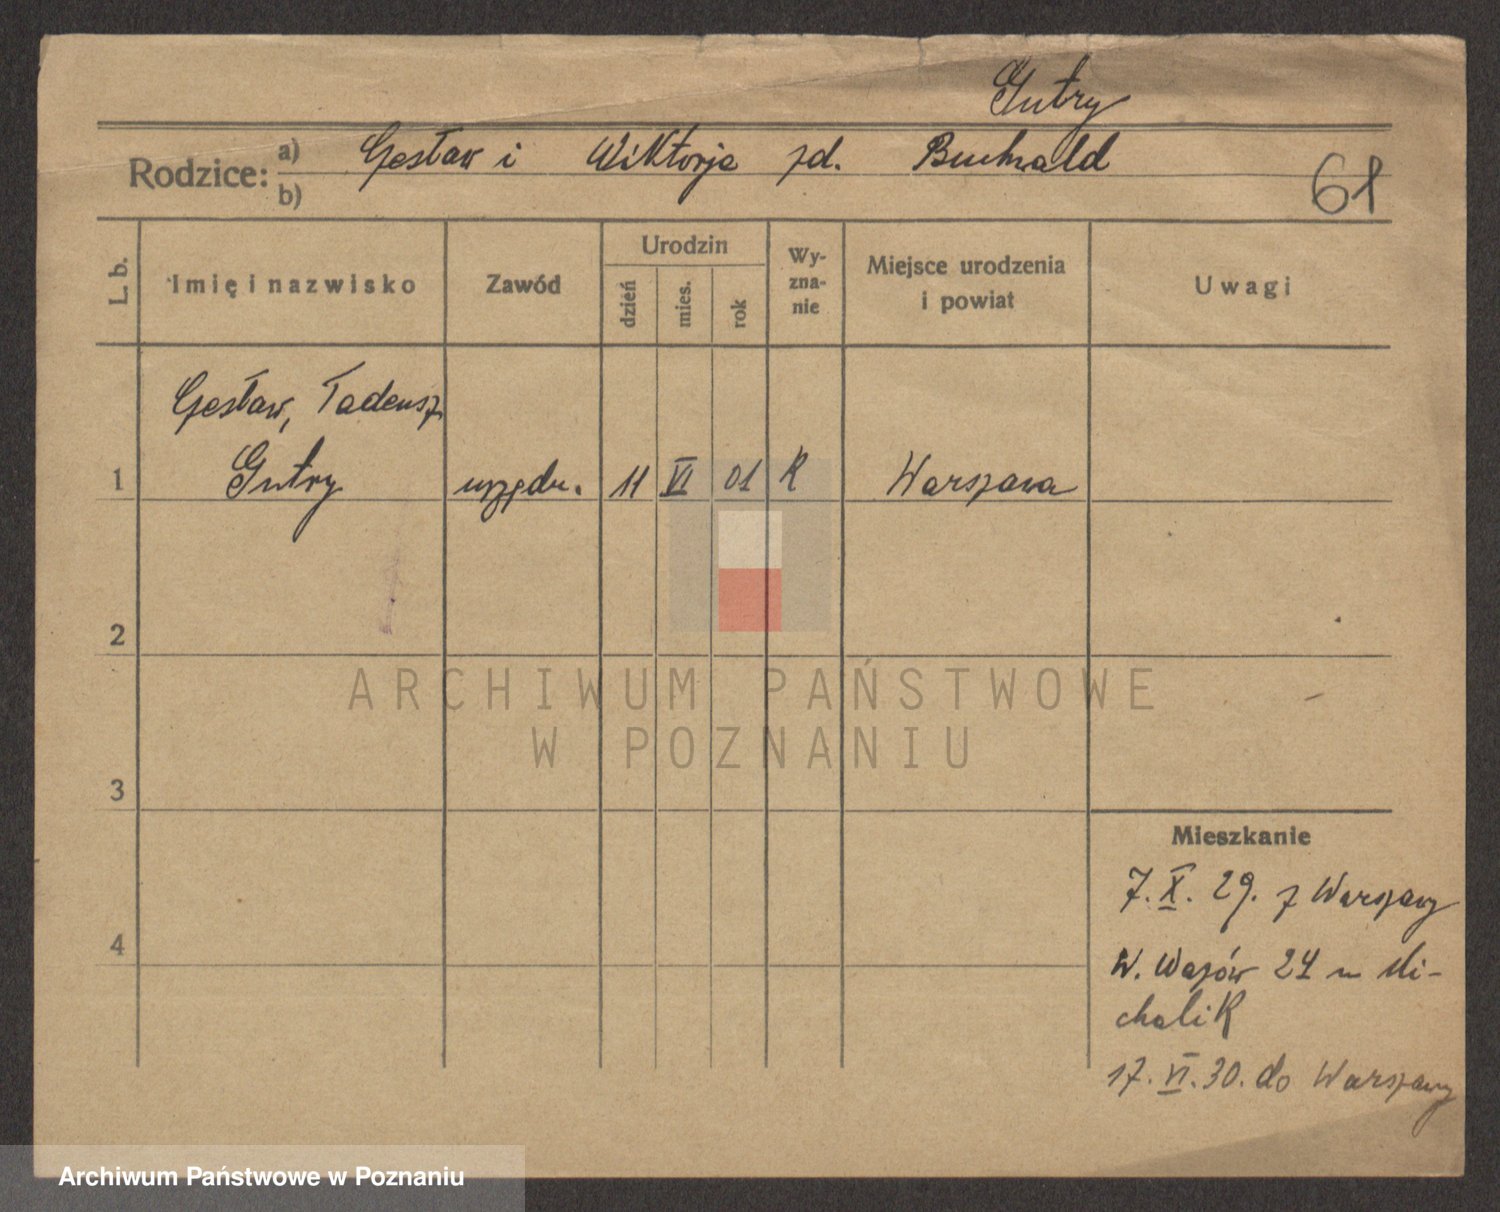 Gutry
Rodzice: a) Gesław i Wiktorja zd. Buchwald
b)
61
L. b. Imię i nazwisko Zawód Urodzin dzień mies. rok Wyznanie Miejsce urodzenia i powiat Uwagi
Gesław, Tadeusz
1 Gutry urzędn. 11 VI 01 R Warszawa
2
ARCHIWUM PAŃSTWOWE
W POZNANIU
3
Mieszkanie
7. X. 29. z Warszawy
4
W. Wazów 24 u Mi-
chalik
17. VI. 30. do Warszawy
Archiwum Państwowe w Poznaniu